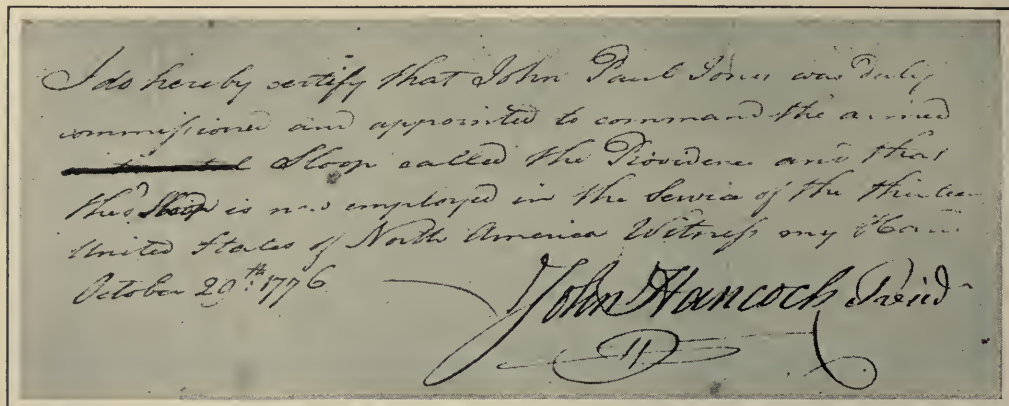 I do hereby certify that John Paul Jones was duly
commissioned and appointed to command the armed
Sloop called the Providence and that
this Sloop is now employed in the Service of the thirteen
United States of North America Witness my Hand
October 29th. 1776
John Hancock Presidt